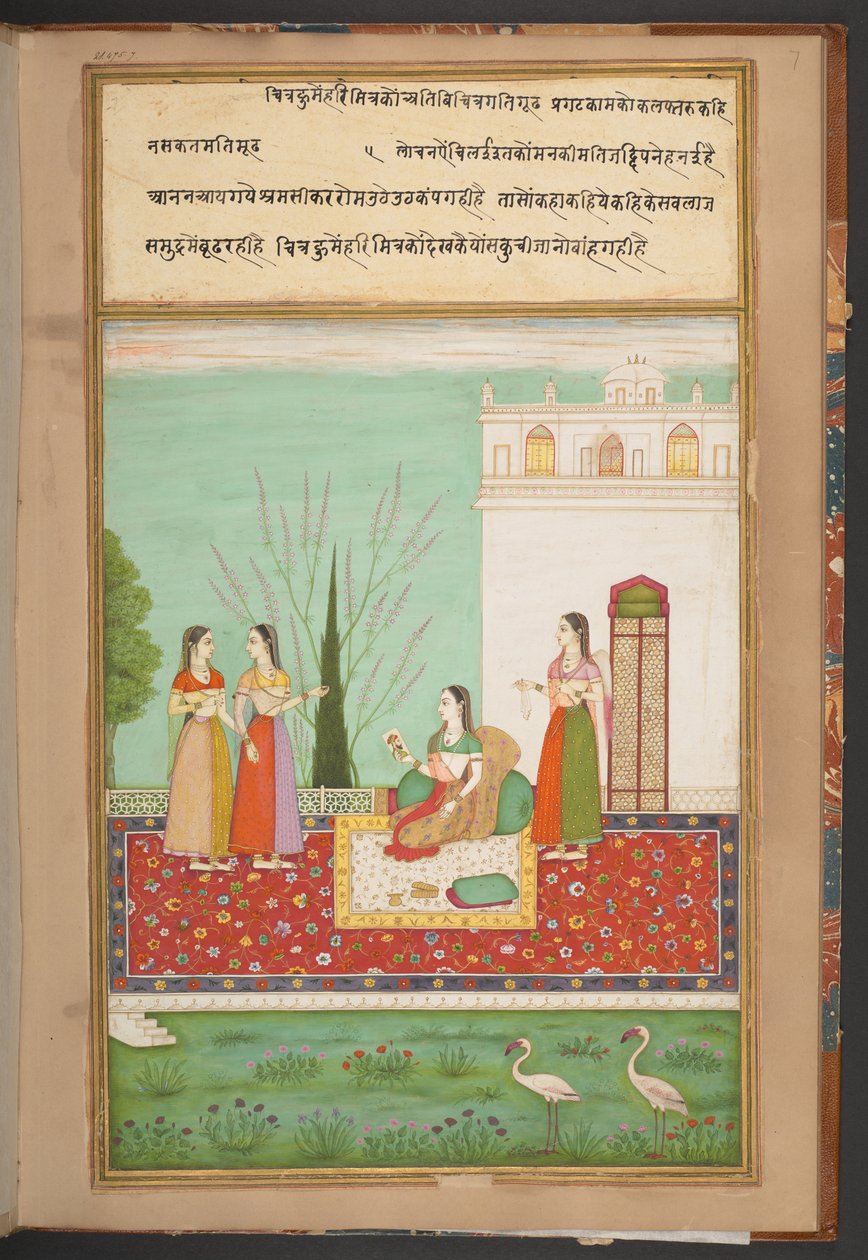 21.475.7
7
चित्रहूमेंहरिमित्रकोंअतिबिचित्रगतिगूढ प्रगटकामकोकलपतरुकहि
नसकतमतिमूढ ५ लोचनऐंचिलईइतकोंमनकीमतिजद्दिपनेहनईहै
आननआयगयेश्रमसीकररोमउठेउठकंपगहीहै तासोंकहाकहियेकहिकेसवलाज
समुद्रमेंबूढरहीहै चित्रहूमेंहरिमित्रकोंदेखकैयोंसकुचीजानोबांहगहीहै